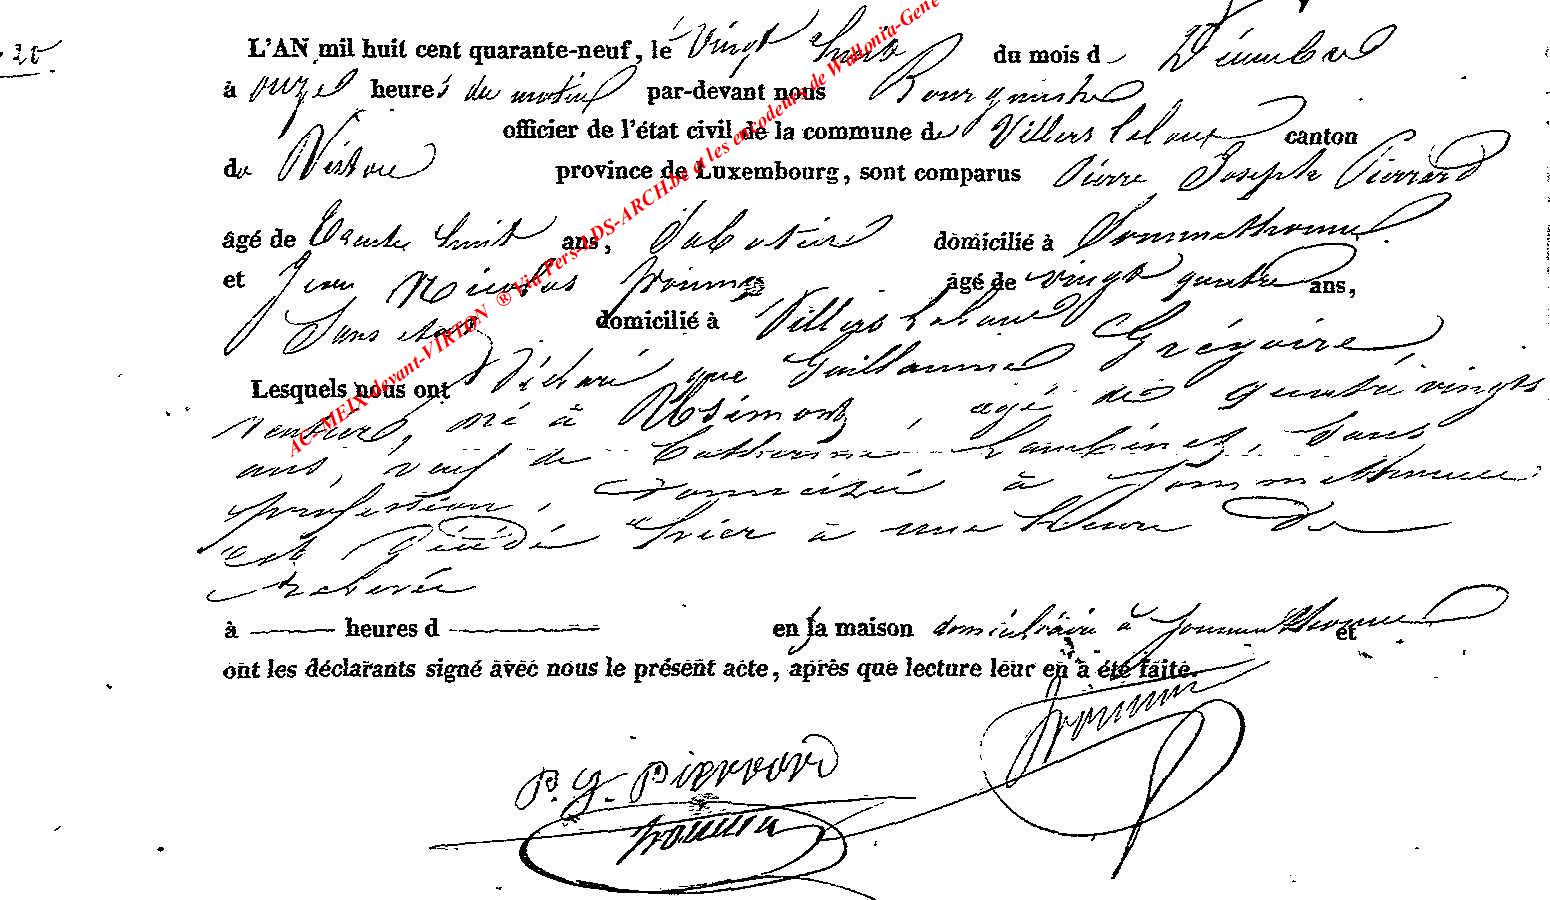 25
L'AN mil huit cent quarante-neuf, le Vingt huit du mois d Décembre
à onze heures du matin par-devant nous Bourgmestre
officier de l'état civil de la commune de Villers laloue canton
de Virton province de Luxembourg, sont comparus Pierre Joseph Pierrard
âgé de trente huit ans, Sabotier domicilié à Sommethonne
et Jean Nicolas age de vingt quatre ans,
Sans état domicilié à Villers laloue
Lesquels nous ont déclaré que Guillaume Grégoire,
né à agé de quatre vingts
ans, veuf de Catherine Lambinet, sans
profession, domicilié à Sommethonne
est décédé hier à une heure de
relevée
à heures d en la maison domiciliaire à Sommethonne et
ont les déclarants signé avec nous le présent acte, après que lecture leur en a été faite.
P. J. Pierrard
AC-MEIX-devant-VIRTON ® Via Pers-ADS-ARCH.be et les encodeurs de Wallonia-Gene